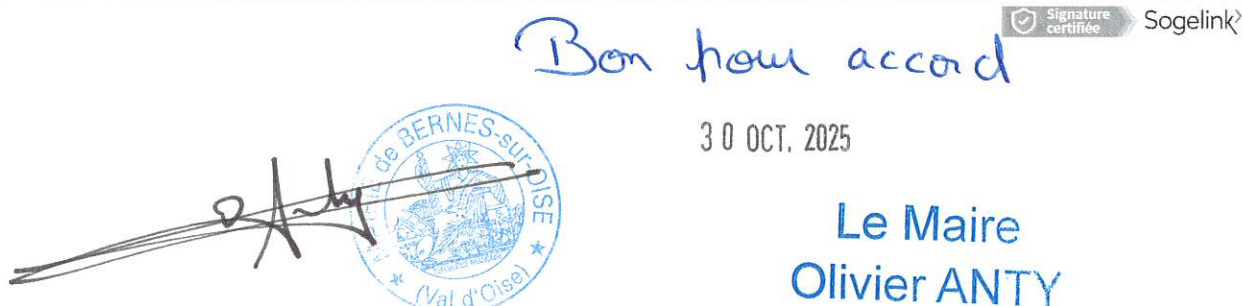 Signature
certifiée
Sogelink
Bon pour accord
30 OCT. 2025
MAIRIE de BERNES-sur-OISE
(Val d'Oise)
Le Maire
Olivier ANTY
O Anty